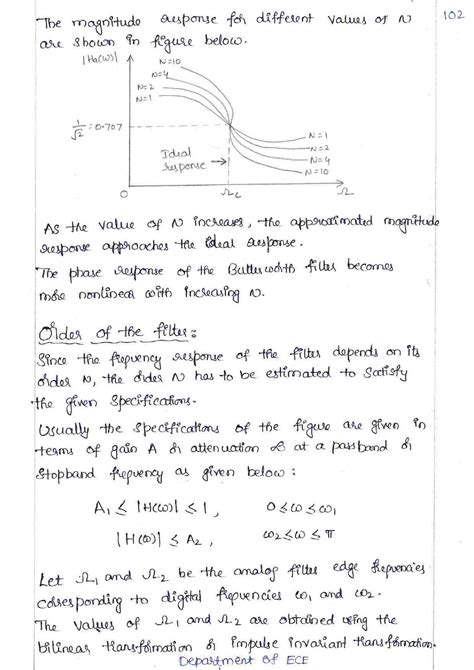 The magnitude response for different values of N
102
are shown in figure below.
|Ha(ω)|
N=10
N=4
N=2
N=1
1/√2 = 0.707
N=1
N=2
N=4
N=10
Ideal
response
0
Ωc
Ω
As the value of N increases, the approximated magnitude
response approaches the ideal response.
The phase response of the Butterworth filter becomes
more nonlinear with increasing N.
Order of the filter:
Since the frequency response of the filter depends on its
order N, the order N has to be estimated to satisfy
the given specifications.
Usually the specifications of the figure are given in
terms of gain A or attenuation α at a passband or
stopband frequency as given below:
A₁ ≤ |H(ω)| ≤ 1, 0 ≤ ω ≤ ω₁
|H(ω)| ≤ A₂, ω₂ ≤ ω ≤ π
Let Ω₁ and Ω₂ be the analog filter edge frequencies
corresponding to digital frequencies ω₁ and ω₂.
The values of Ω₁ and Ω₂ are obtained using the
bilinear transformation or impulse invariant transformation.
Department of ECE